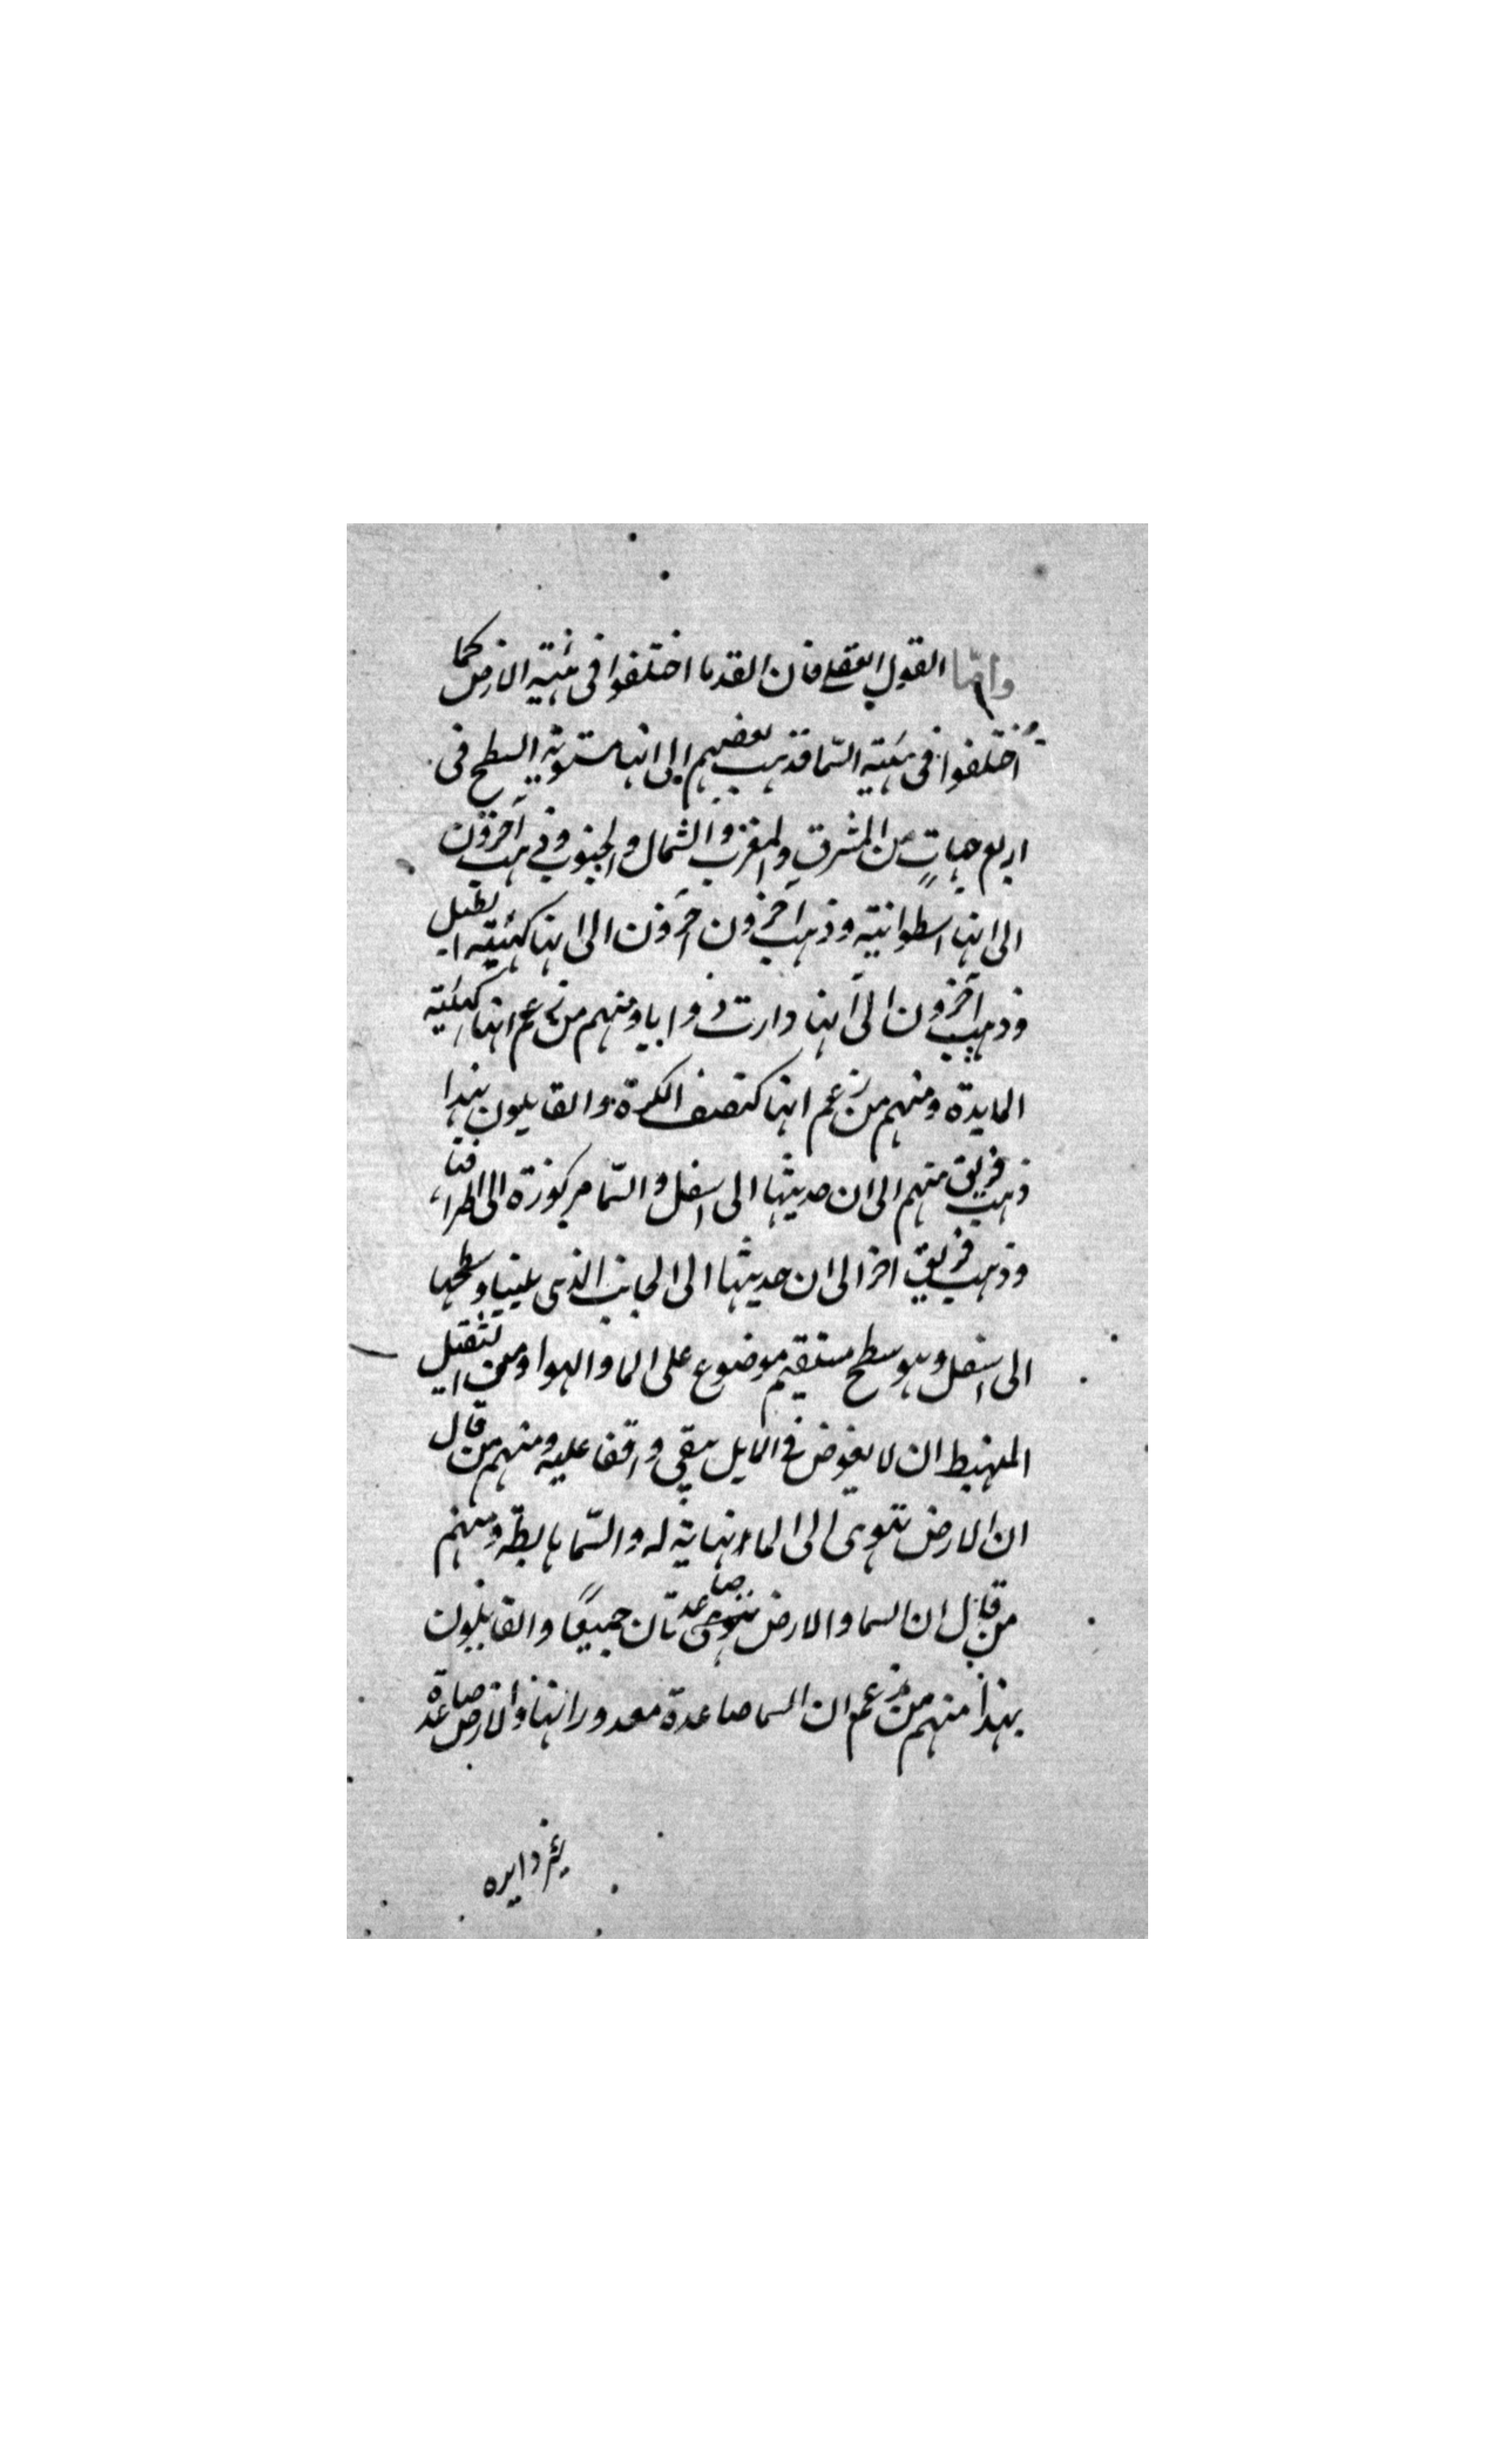 وامّا القول العقلي فان القدما اختلفوا في هئية الارض كما
اختلفوا في هيئة السّما فذهب بعضهم الى انها مستوية السطح في
اربع جهاتٍ من المشرق والمغرب والشمال والجنوب وذهب آخرون
الى انها اسطوانية وذهب آخرون آخرون الى انها كهيئة الطبل
وذهب آخرون الى انها دارت ذوابا ومنهم من زعم انها كهئية
المايدة ومنهم من زعم انها كنصف الكرة والقايلون بهذا
ذهب فريق منهم الى ان حدبتها الى اسفل والسّما مركوزة الى اطرافنا
وذهب فريق اخر الى ان حدبتها الى الجانب الذى يلينا وسطحها
الى اسفل وهو سطح مستقيم موضوع على الما والهوا ومن الثقيل
المنهبط ان لا يغوض في المايل يبقي واقفا عليه ومنهم من قال
ان الارض تهوى الى الما نهاية له والسّما هابطة ومنهم
من قال ان السما والارض صاعدتان جميعًا والقايلون
بهذا منهم من زعم ان السما صاعدة مع دورانها والارض صاعدة
دايره